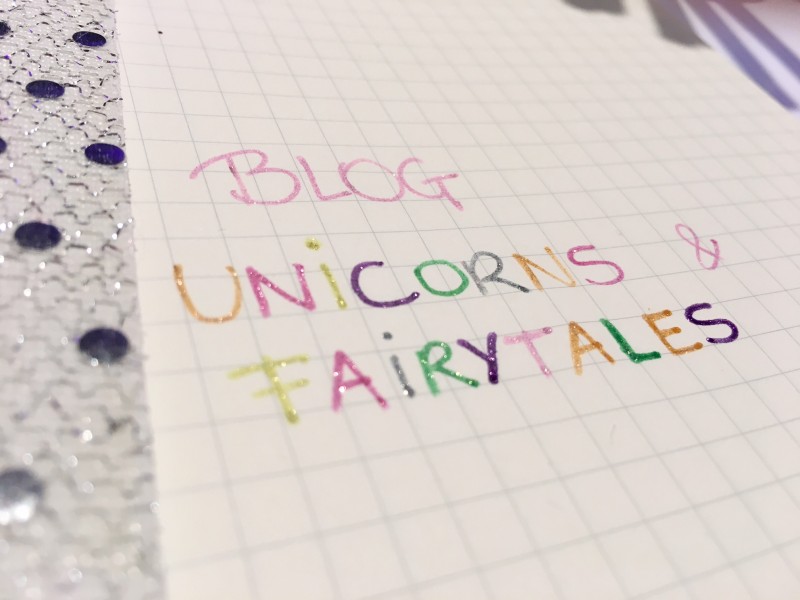 BLOG
UNiCORNS &
FAiRYTALES